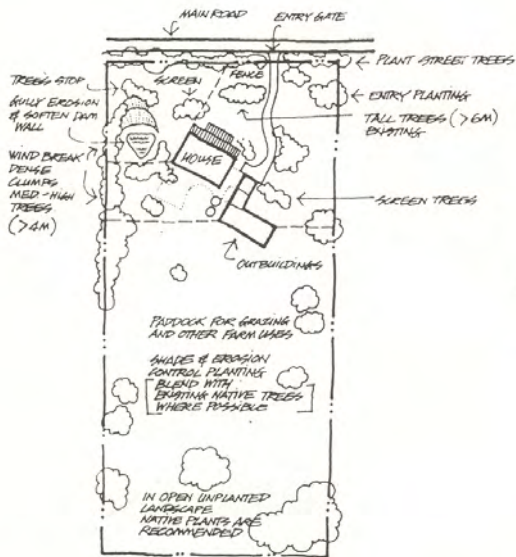 MAIN ROAD
ENTRY GATE
PLANT STREET TREES
TREES STOP
GULLY EROSION
& SOFTEN DAM
WALL
SCREEN
FENCE
ENTRY PLANTING
TALL TREES (>6M)
EXISTING
WIND BREAK
DENSE
CLUMPS
MED.-HIGH
TREES
(>4M)
HOUSE
SCREEN TREES
OUTBUILDINGS
PADDOCK FOR GRAZING
AND OTHER FARM USES
SHADE & EROSION
CONTROL PLANTING
[BLEND WITH
EXISTING NATIVE TREES
WHERE POSSIBLE]
IN OPEN UNPLANTED
LANDSCAPE
NATIVE PLANTS ARE
RECOMMENDED